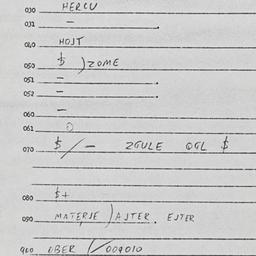 030 HERCU
031 —
040 HOJT
050 $ ) ZOME
051 —
052 —
060 —
061
070 $ / — ZGULE OGL $
080 $+
090 MATERJE ) AJTER. EJTER
900 UBER / 009010